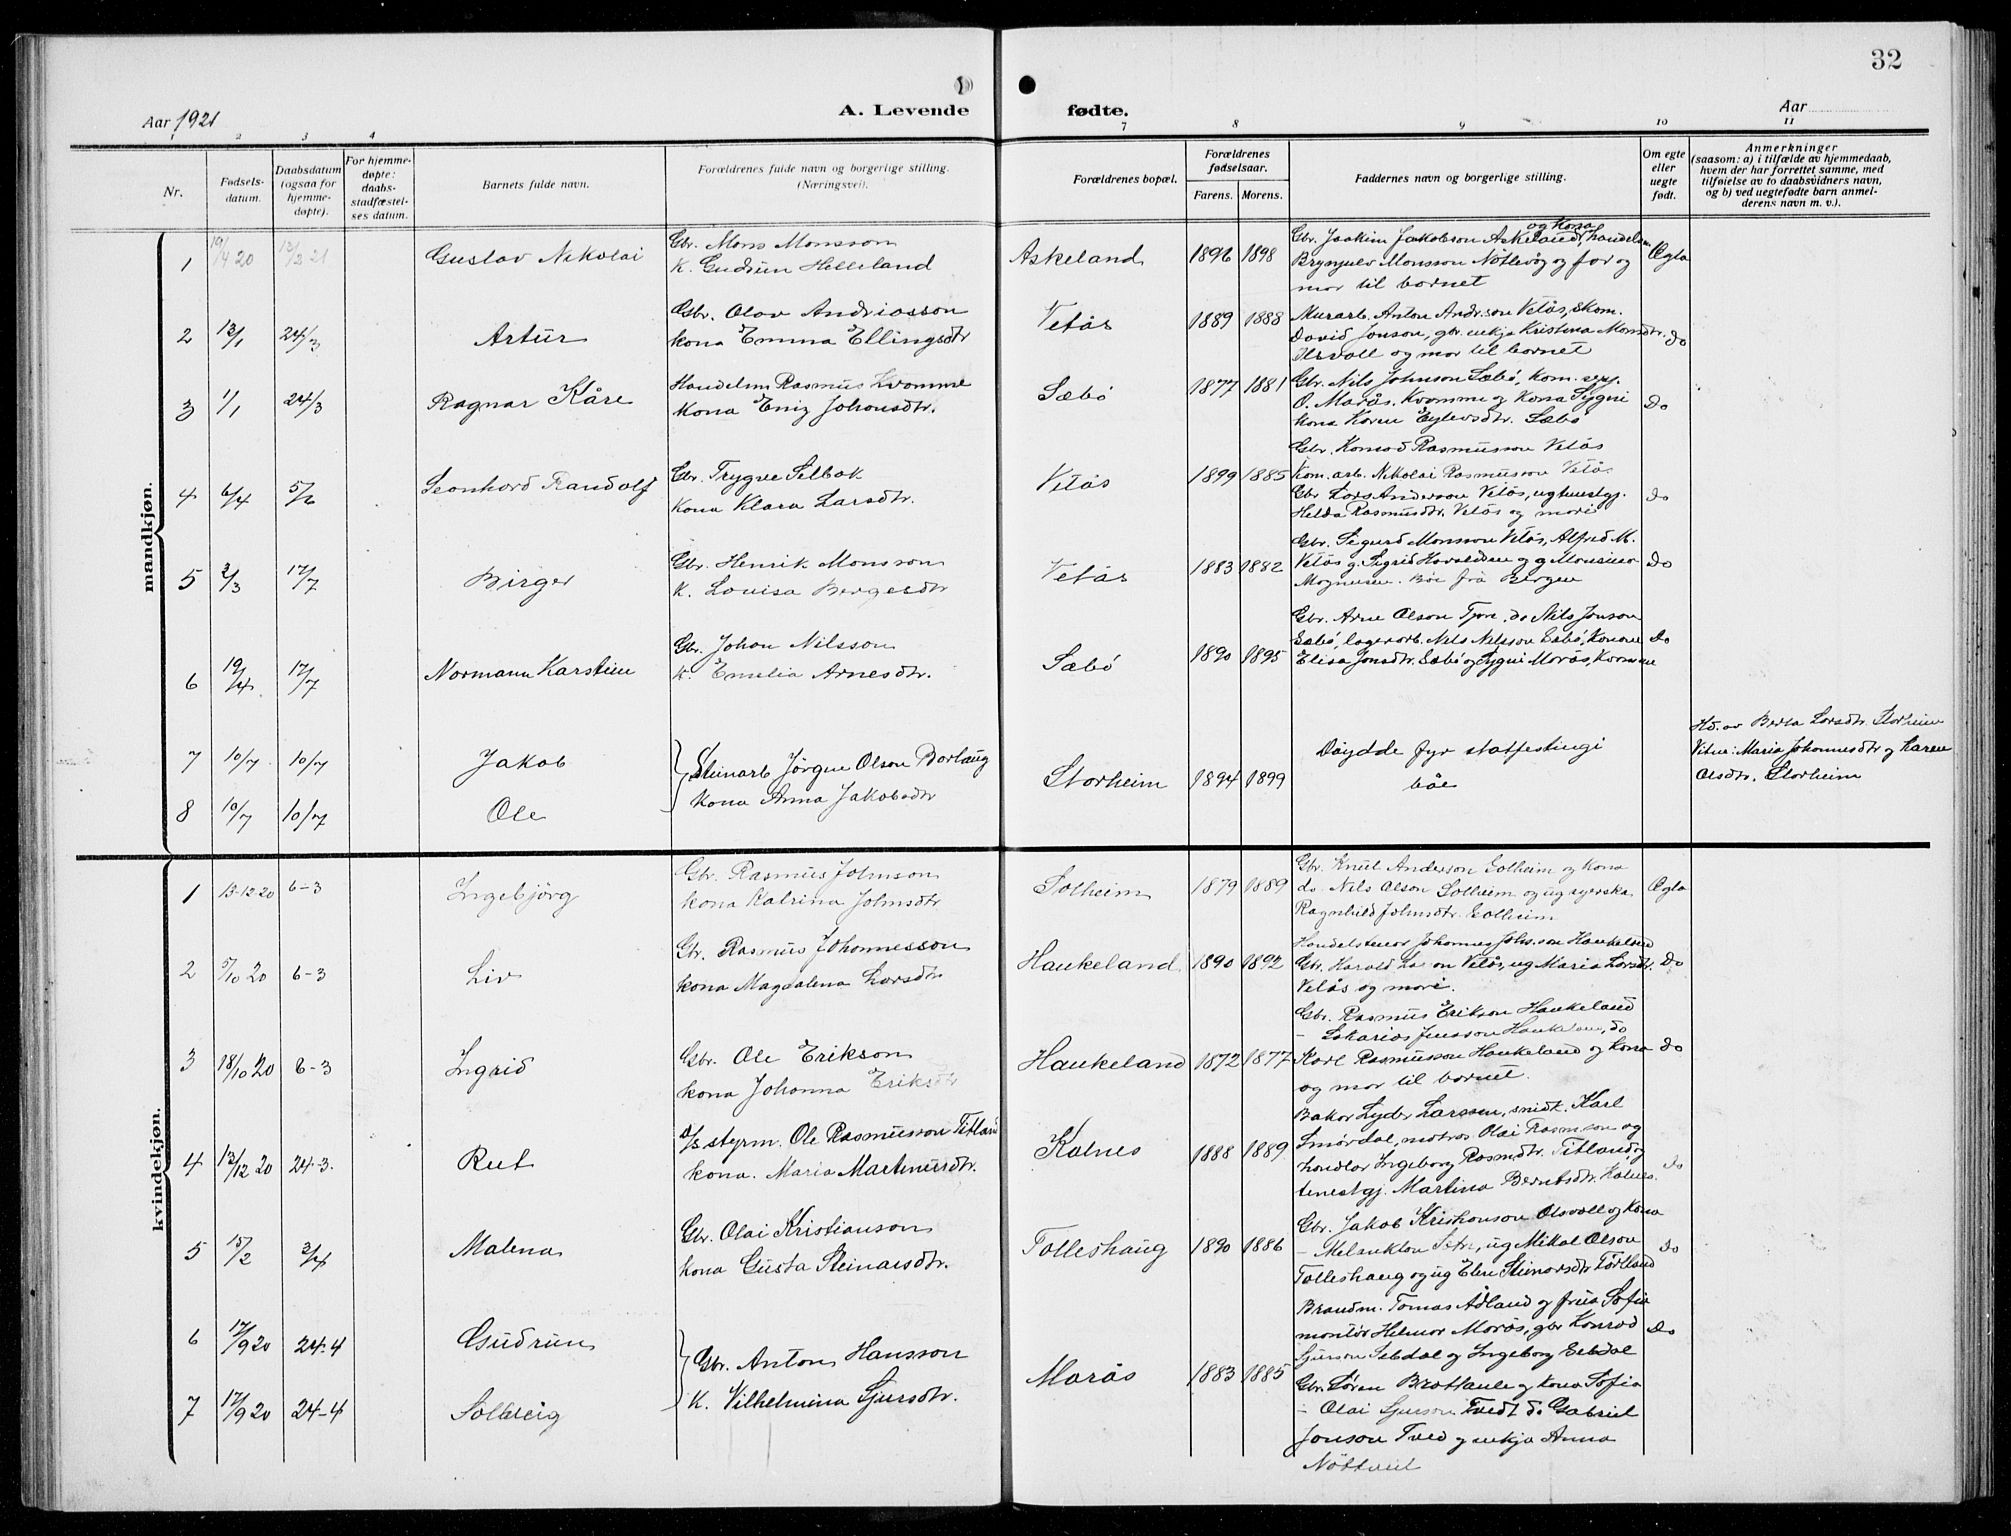 32
A. Levende fødte.
Aar 1921
Aar
1 2 3 4 7 8 9 10 11
Nr.
Fødsels-
datum.
Daabsdatum
(ogsaa for
hjemme-
døpte).
For hjemme-
døpte:
daabs-
stadfæstel-
ses datum.
Barnets fulde navn.
Forældrenes fulde navn og borgerlige stilling.
(Næringsvei).
Forældrenes bopæl.
Forældrenes
fødselsaar.
Farens. Morens.
Faddernes navn og borgerlige stilling.
Om egte
eller
uegte
født.
Anmerkninger
(saasom: a) i tilfælde av hjemmedaab,
hvem der har forrettet samme, med
tilføielse av to daabsvidners navn,
og b) ved uegtefødte barn anmel-
derens navn m. v.).
mandkjøn.
1 19/14 20 13/2 21 Gustav Nikolai
Gbr. Mons Monsson
K. Gudrun Helleland
Askeland 1896 1898
og Kona
Gbr. Joakim Jakobson Askeland, handelsm
Brynjulv Monsson Nøtlevåg og far og
mor til bornet
Ægta
2 13/1 24/3 Artur
Gbr. Olav Andriasson
kona Emma Ellingsdtr
Vetås 1889 1888
Murarb. Anton Andr.son Vetås, skom.
David Jonson, gbr. enkja Kristina Monsdtr.
Ilsvall og mor til bornet
do
3 1/1 24/3 Ragnar Kåre
Handelsm Rasmus Kvamme
Kona Eniz Johansdtr.
Sæbö 1877 1881
Gbr. Nils Johnson Sæbö, kom. repj.
O. Marås. Kvamme og kona Sygni
kona Karen Eylevsdtr. Sæbö
Do
4 6/4 5/6 Leonhard Randolf
Gbr. Trygve Selbak
Kona Klara Larsdtr.
Vetås 1899 1885
Gbr. Konrad Rasmusson Vetås
Kom.arb. Nikolai Rasmusson Vetås
Gbr Lars Anderson Vetås, ug tenestgj.
Helda Rasmusdtr. Vetås og mori
do
5 2/3 17/7 Birger
Gbr. Henrik Monsson
K. Lovisa Bergesdtr
Vetås 1883 1882
Gbr. Sigurd Monsson Vetås, Alfred M.
Vetås g. Sigrid Haraldsen og g Monsine
Magnusen. Båe frå Bergen
Do
6 19/4 17/7 Normann Karstein
Gbr. Johan Nilsson
K. Emelia Arnesdtr.
Sæbö 1890 1895
Gbr. Arne Olson Tjore, do Nils Jonson
Sæbö, lagerarb. Nils Nilsson Sæbö, Konone
Elisa Jonsdtr. Sæbö og Sygni Marås, Kvamme
Do
7 10/7 10/7 Jakob
Steinarb Jörgen Olson Borlaug
kona Anna Jakobsdtr
Storheim 1894 1899
Döydde fyr statfestingi
båe
Hd. av Berta Larsdtr. Storheim
Vitne: Maria Johannesdtr og Karen
Olsdtr. Storheim
8 10/7 10/7 Ole
kvindekjøn.
1 13-12 20 6-3 Ingebjörg
Gbr. Rasmus Johnson
kona Katrina Johnsdtr
Solheim 1879 1889
Gbr. Knut Anderson Solheim og kona
do. Nils Olson Solheim og ug syerska
Ragnhild Johnsdtr. Solheim
Ægta
2 5/10 20 6-3 Liv
Gbr. Rasmus Johannesson
kona Magdalena Larsdtr
Haukeland 1890 1892
Handelstenar Johannes Johs.son Haukeland
Gbr. Harald La on Vetås, ug Maria Larsdtr.
Vetås og mori.
Do
3 18/10 20 6-3 Ingrid
Gbr. Ole Erikson
kona Johanna Eriksdtr
Haukeland 1872 1877
Gbr. Rasmus Erikson Haukeland
- Sakarias Jensson Haukeland, do
Karl Rasmusson Haukeland og kona
og mor til bornet.
do
4 13/12 20 24-3. Rut
2/s styrm. Ole Rasmusson Titland
kona. Maria Martinusdtr.
Kalnes 1888 1889
Bakar Lyder Larssen, smidt. Karl
Smördal, matros Olai Rasmson og
handlar Ingeborg Rasmdtr. Titland og
tenestgj. Martina Berntsdtr. Kalnes.
do
5 15/2 3/4 Malena
Gbr. Olai Kristianson
kona Gusta Steinarsdtr.
Tolleshaug 1890 1886
Gbr. Jakob Kristianson Olsvoll og kona
- Melankton Sætr, ug Mikal Olson
Tolleshaug og ug Elen Steinarsdtr Törlland
do
6 17/9 20 24-4 Gudrun
Gbr. Anton Hansson
K. Vilhelmina Sjursdtr.
Marås 1883 1885
Brandm. Tomas Ådland og frua Sofia
montör Helmer Marås, gbr Konrad
Sjurson Sebdal og Ingeborg Sebdal
Gbr. Sören Brattaule og kona Sofia
- Olai Sjurson Tvedt do Gabriel
Jonson Tved og enkja Anna
Nöttveit
do
7 17/9 20 24-4 Solveig